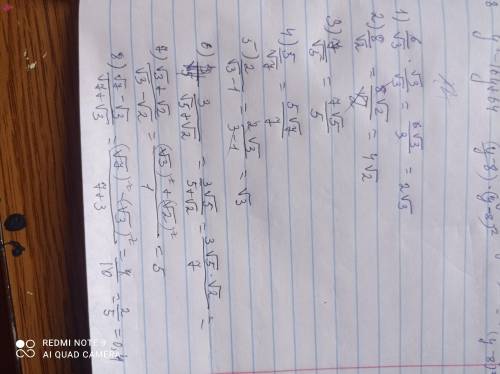 1) 6/√3 · √3/√3 = 6√3/3 = 2√3
2) 8/√2 = 8√2/2 = 4√2
5/√7 = 5√7/7
5) 2/√3-1 = 2√3/3-1 = √3
3/√5+√2 = 3√5/5+√2 = 3√5·√2/7 =
7) √3+√2/√3-√2 = (√3)²+(√2)²/1 = 5
8) √7-√3/√7+√3 = (√7)²-(√3)²/7+3 = 4/10 = 2/5 =
REDMI NOTE 9
AI QUAD CAMERA